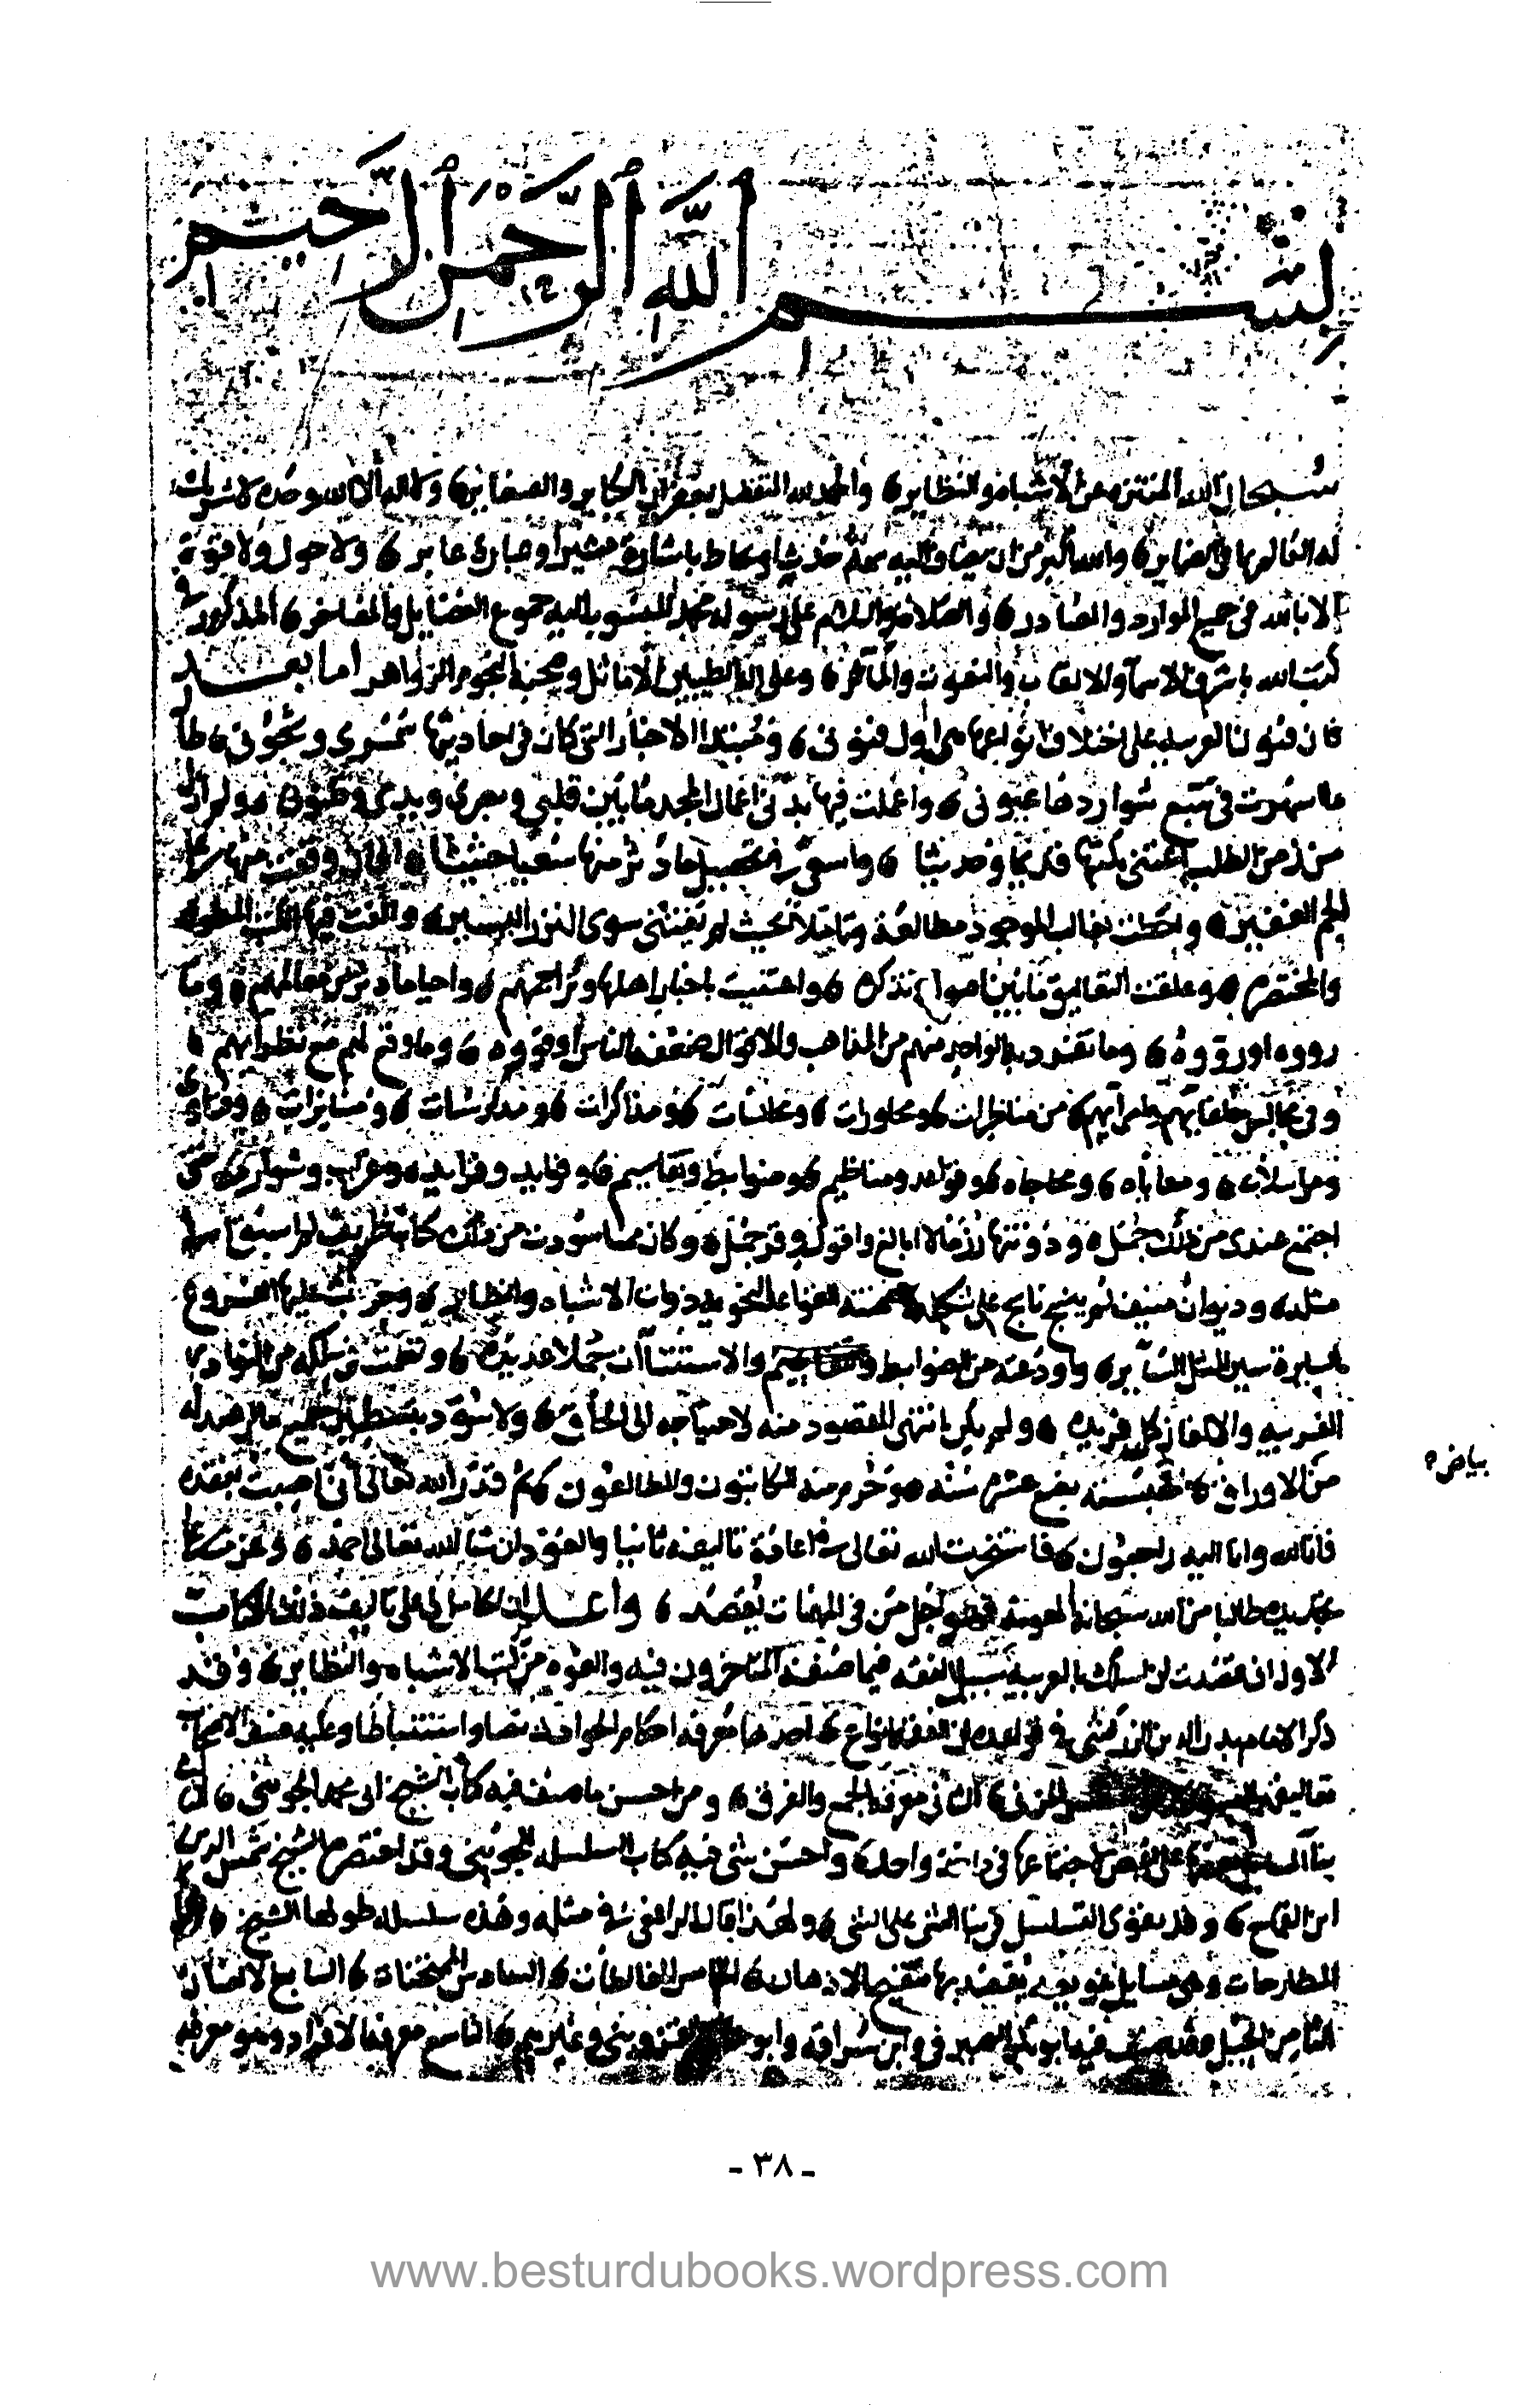 بسم الله الرحمن الرحيم
سبحان الله المنزه عن الاشباه والنظاير والحمد لله المتفضل بغفران الكباير والصغاير ولا اله الا الله وحده لا شريك
له العالم بما في الضماير والله اكبر من ان باشارة مشير او عبارة عابر ولا حول ولا قوة
الا بالله في جميع الموارد والمصادر والصلاة والسلام على رسوله محمد المنسوب اليه جموع الفضايل والمفاخر المذكور في
كتب الله باشرف الاسما والالقاب والنعوت والمآثر وعلى اله الطيبين الاماثل وصحبه النجوم الزواهر اما بعد
فان فنون العربيه على اختلاف انواعها هي اول فنوني ومبتدا الاخبار التي كان في احاديثها سمري وشجوني طا
لما سهرت في تتبع شواردها عيوني واعملت فيها بدني اعمال المجد ما بين قلبي وبصري ويدي وظنوني ولم ازل
من زمن الطلب اعتني بكتبها قديما وحديثا واسعى في تحصيل ما دثر منها سعيا حثيثا الى ان وقفت منها على
الجم الغفير واحطت بغالب الموجود مطالعة وتاملا بحيث لم يفتني سوى النزر اليسير والفت فيها الكتب المطوله
والمختصره وعلقت التعاليق ما بين اصول وتذكره واعتنيت باخبار اهلها وتراجمهم واحيا ما دثر من معالمهم وما
رووه او رووه وما تفرد به الواحد منهم من المذاهب والاقوال ضعفه الناس او قووه وما وقع لهم مع نظرايهم
وفي مجالس خلفايهم وامرايهم من مناظرات ومحاورات ومجالسات ومذاكرات ومدارسات ومسايرات وفتاوى
ومراسلات ومعاياه ومحاجاه وقواعد ومناظيم وضوابط وتقاسيم وفوايد وفرايد وغرايب وشوارد حتى
اجتمع عندي من ذلك جمل ودونتها رزما لا ابالغ واقول وقر جمل وكان مما سودت من ذلك كتاب ظريف لم اسبق الى
مثله وديوان منيف لم ينسج ناسج على شكله ضمنته القواعد النحويه ذوات الاشباه والنظاير وخرجت عليها الفروع
السايرة سير المثل الساير واودعته من الضوابط والاستثناات جملا عديده ونظمت في سلكه من النوادر
الغريبه والالغاز كل فريده ولم يكن انتهى المقصود منه لاحتياجه الى الحاق ولا سود بتسطير جميع ما ارصد له
من الاوراق فحبسته بضع عشرة سنه وحرم منه الكاتبون والمطالعون ثم قدر الله تعالى اني اصبت بفقده
فانا لله وانا اليه راجعون فاستخرت الله تعالى في اعادة تاليفه ثانيا والعود ان شا الله تعالى احمد وعزمت على
تجديده طالبا من الله سبحانه المعونة فهو اجل من في المهمات يقصد واعلم ان الحامل لي على تاليف ذلك الكتاب
الاول اني قصدت ان اسلك بالعربية سبيل الفقه فيما صنفه المتاخرون فيه والفوه من كتب الاشباه والنظاير وقد
ذكر الامام بدر الدين الزركشي في قواعده ان الفقه انواع احدها معرفة احكام الحوادث نصا واستنباطا وعليه صنف الاصحاب
تعاليقهم المزني الثاني معرفة الجمع والفرق ومن احسن ما صنف فيه كتاب الشيخ ابي محمد الجويني الثالث
بنا المسايل بعضها على بعض لاجتماعها في ماخذ واحد واحسن شي فيه كتاب السلسله للجويني وقد اختصره الشيخ شمس الدين
ابن القماح وقد يقوى التسلسل في بنا الشي على الشي ولهذا قال الرافعي في مثله وهذه سلسله طولها الشيخ
المطارحات وهي مسايل عويصه يقصد بها تنقيح الاذهان الخامس المغالطات السادس الممتحنات السابع الالغاز
الثامن الحيل وقد صنف فيه ابو بكر الصيرفي وابن سراقه وابو القزويني وغيرهم التاسع معرفة الافراد وهو معرفة
بياض ٥
- ٣٨ -
www.besturdubooks.wordpress.com